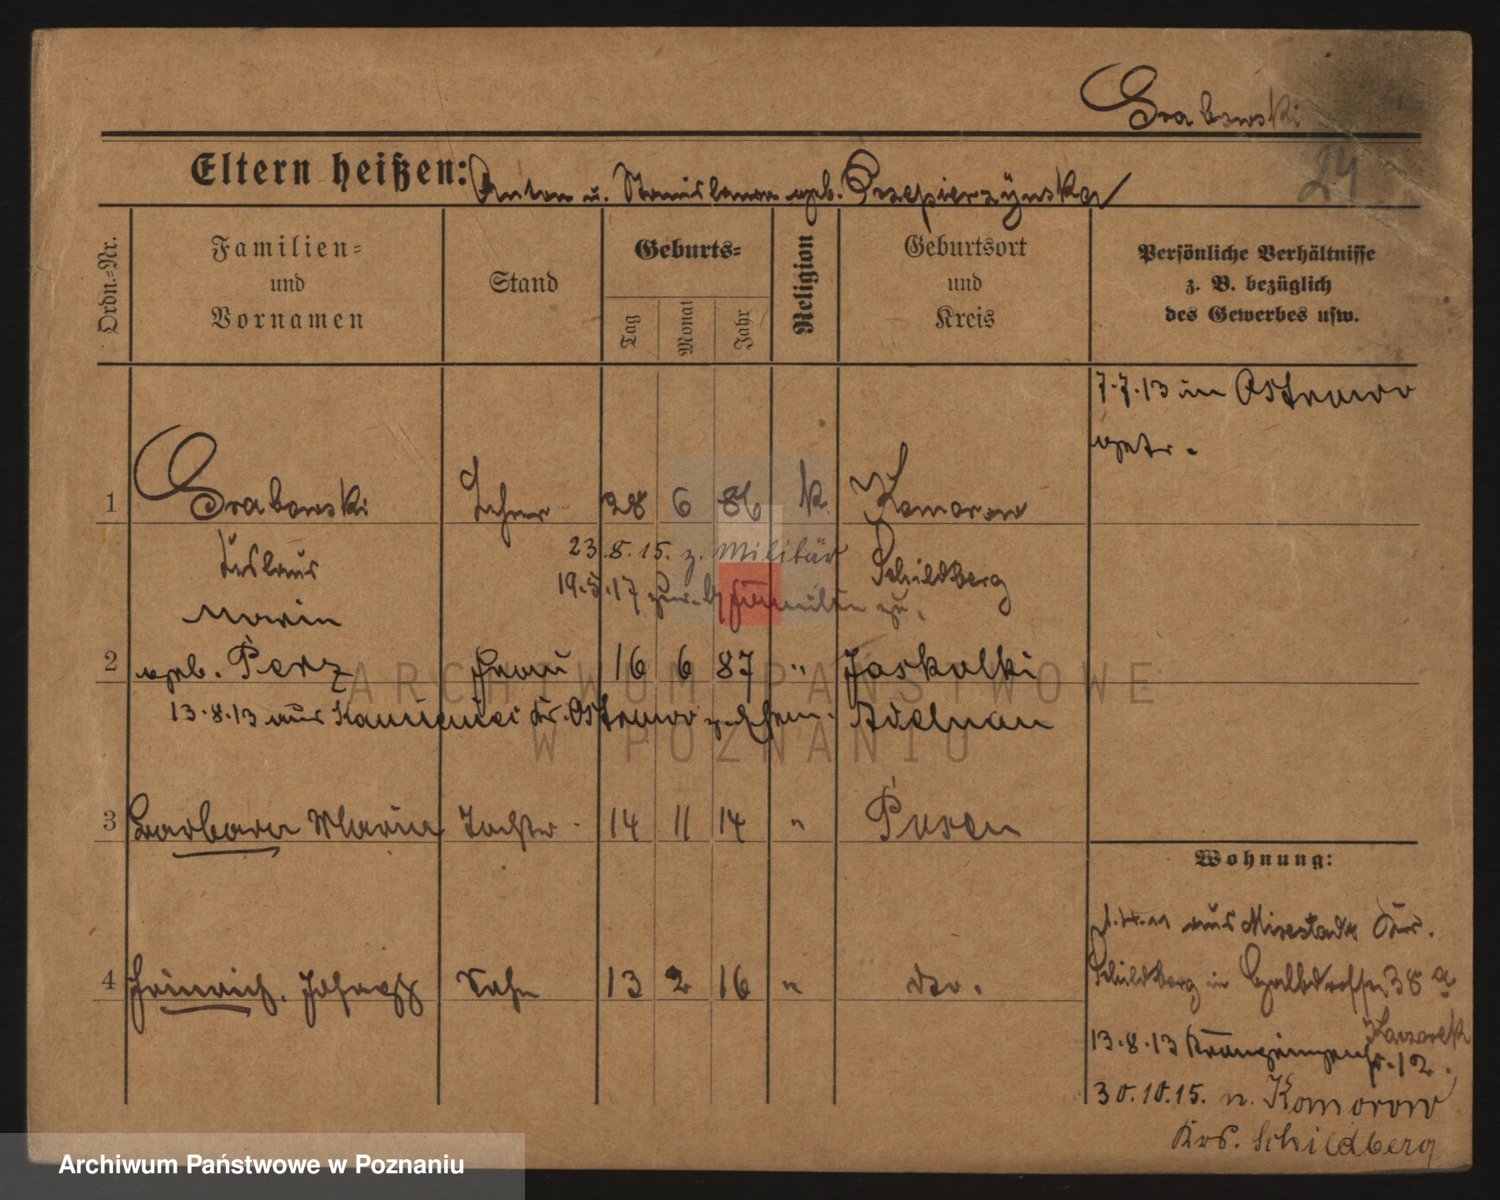 Grabowski
24
Eltern heißen: Anton u. Stanislawa geb. Przepierzynska
Ordn.-Nr.
Familien- und Vornamen
Stand
Geburts-
Tag
Monat
Jahr
Religion
Geburtsort und Kreis
Persönliche Verhältnisse z. B. bezüglich des Gewerbes usw.
7.7.13 in Ostrowo
getr.
1 Grabowski Lehrer 28 6 86 k. Komorow
23.8.15. z. Militär Schildberg
19.5.17
Marin
2 geb. Perz Frau 16 6 87 " Jaskolki
13.8.13 aus Kr. Ostrowo z. Ehem. Adelnau
3 Barbara Maria Tochter 14 11 14 " Posen
4 Heinrich, Joseph Sohn 13 2 16 " do.
Wohnung:
aus Mixstadt Kr.
Schildberg in 38 a
13.8.13 12.
30.10.15. n. Komorow
Krs. Schildberg
ARCHIWUM PAŃSTWOWE
W POZNANIU
Archiwum Państwowe w Poznaniu